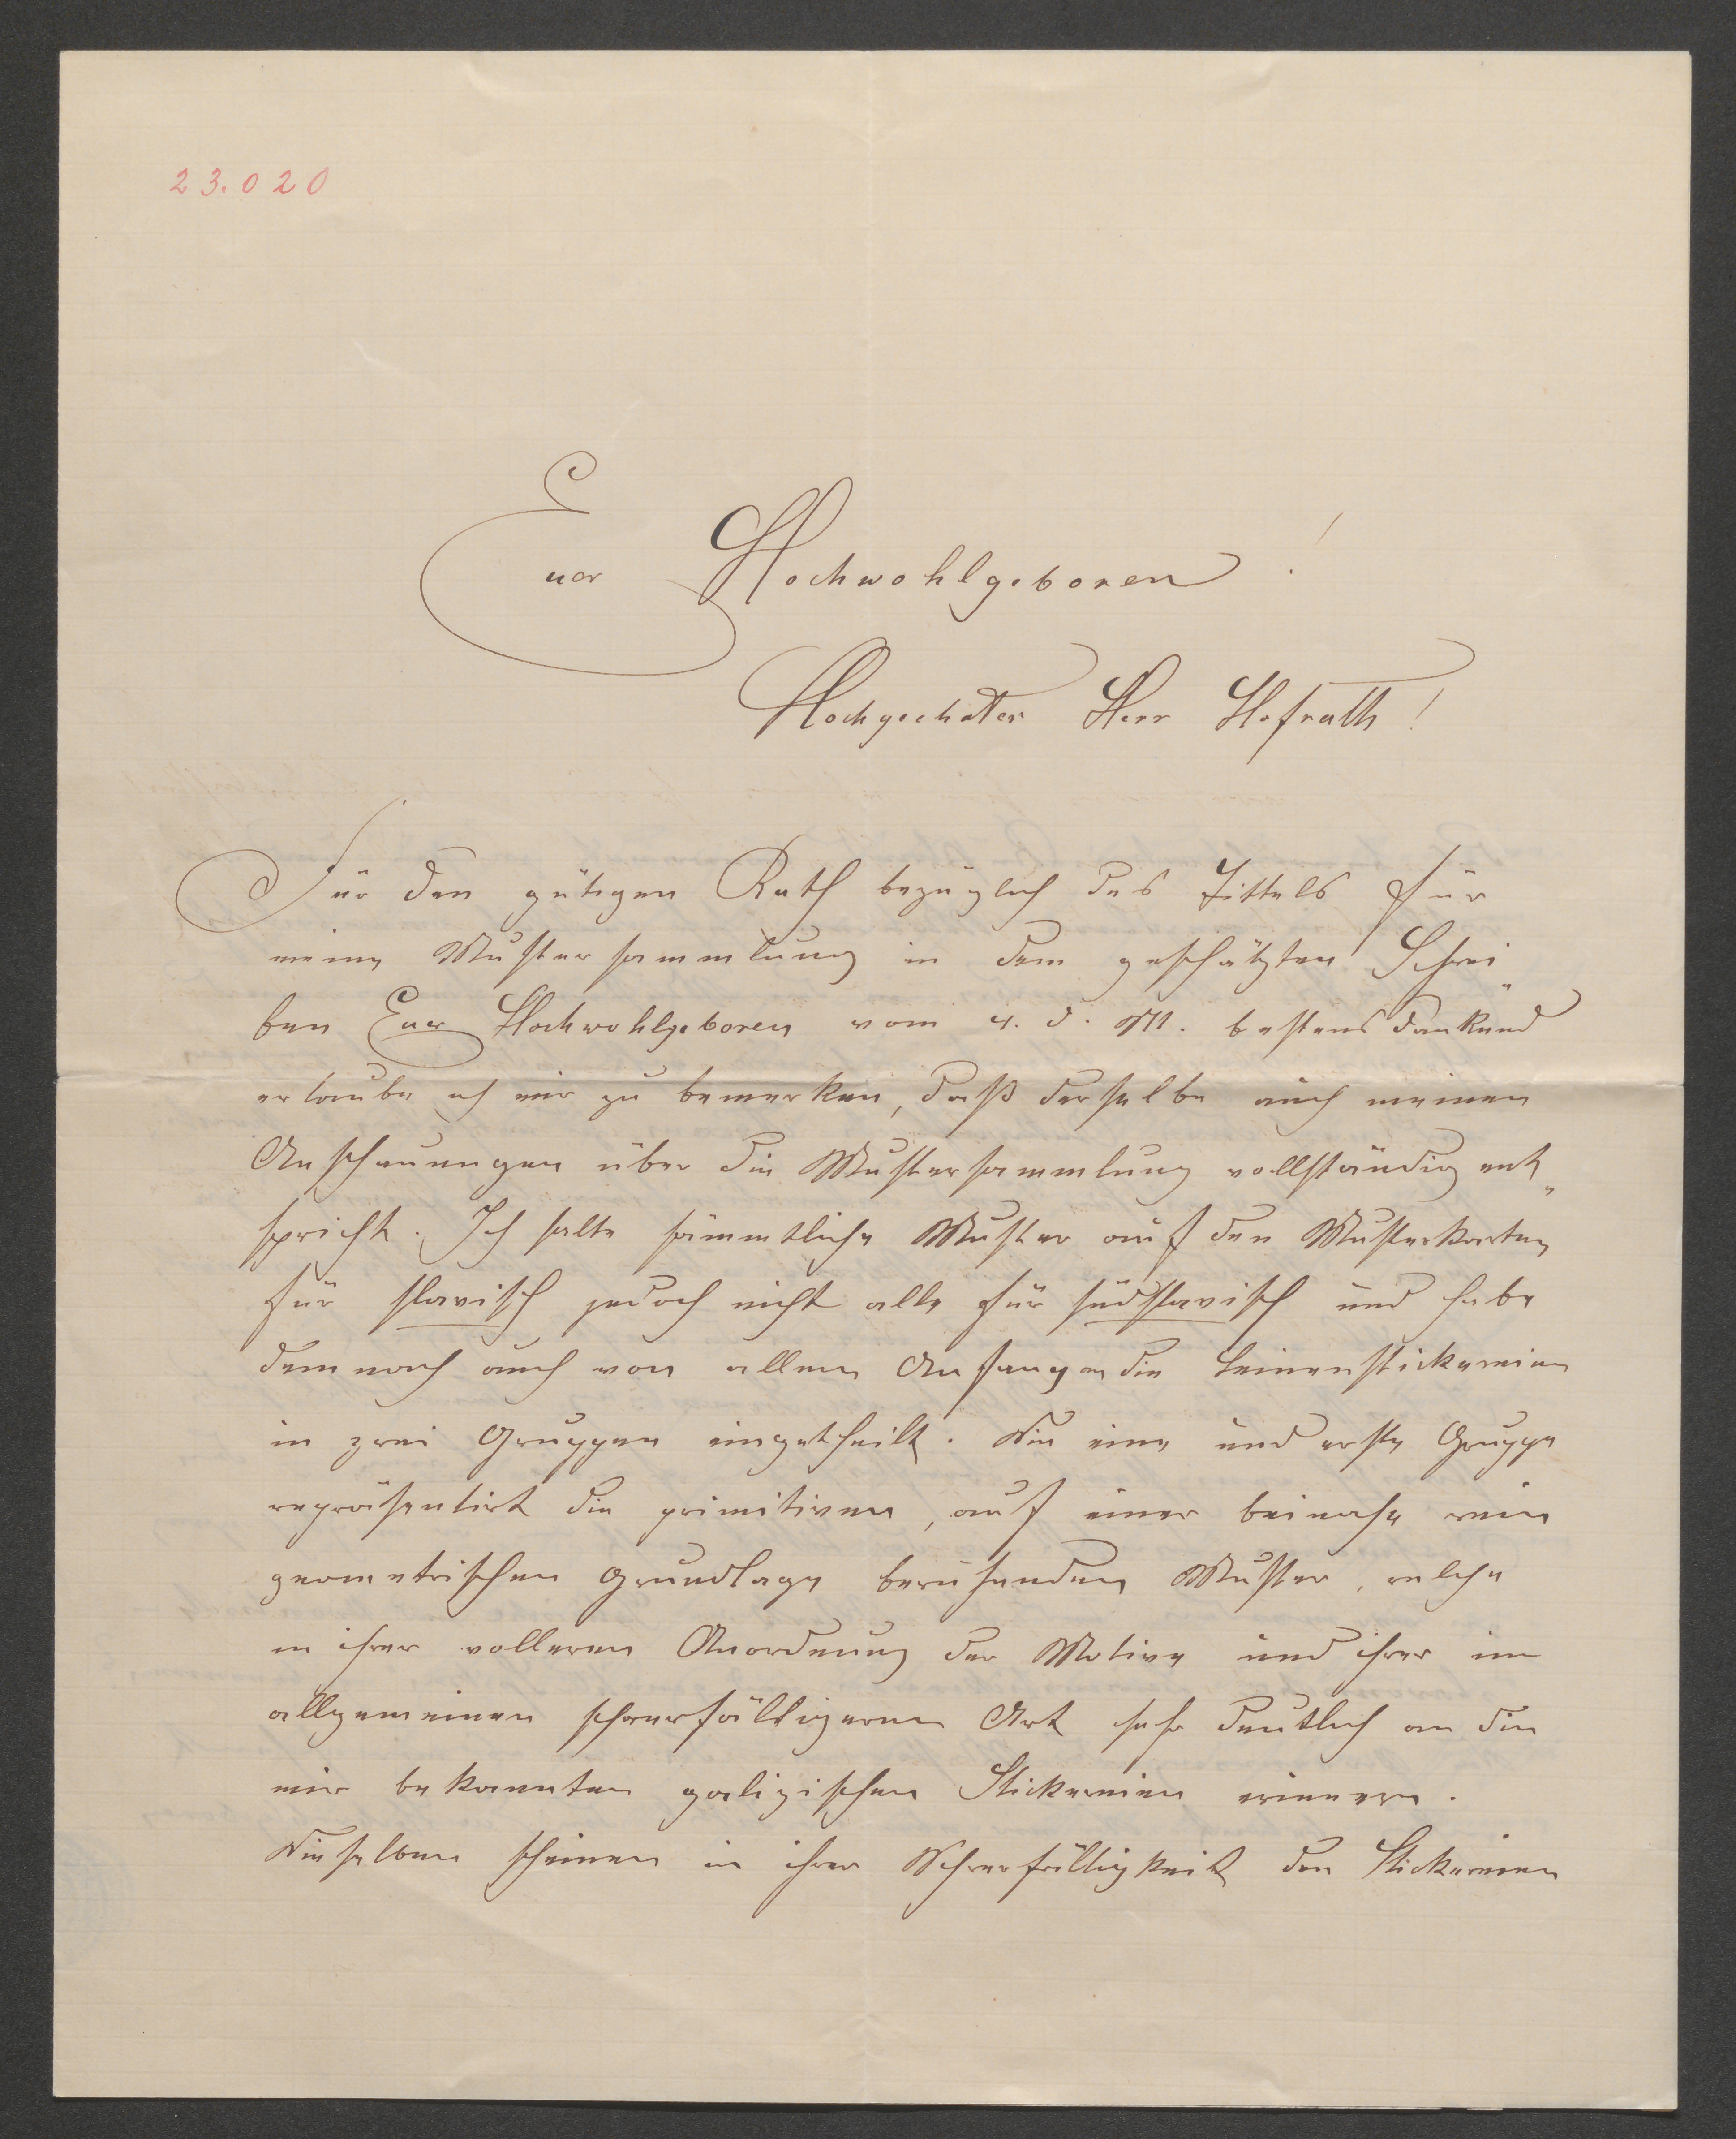 23.020
Euer Hochwohlgeboren!
Hochgeehrter Herr Hofrath!
Für den gütigen Rath bezüglich des Tittels für
meine Mustersammlung in dem geschätzten Schrei„
ben Euer Hochwohlgeboren vom 4. d. M. bestens dankend
erlaube ich mir zu bemerken, daß derselbe auch meinen
Anschauungen über die Mustersammlung vollständig ent„
spricht. Ich halte sämmtliche Muster auf den Musterkarten
für slavisch jedoch nicht alle für südslavisch und habe
demnach auch von allem Anfange die Leinenstickereien
in zwei Gruppen eingetheilt. Die eine und erste Gruppe
repräsentirt die primitiven, auf einer beinahe rein
geometrischen Grundlage beruhenden Muster, welche
in ihrer volleren Anordnung der Motive und ihrer im
allgemeinen schwerfälligeren Art sehr deutlich an die
mir bekannten galizischen Stickereien erinnern.
Dieselben scheinen in ihrer Schwerfälligkeit den Stickereien